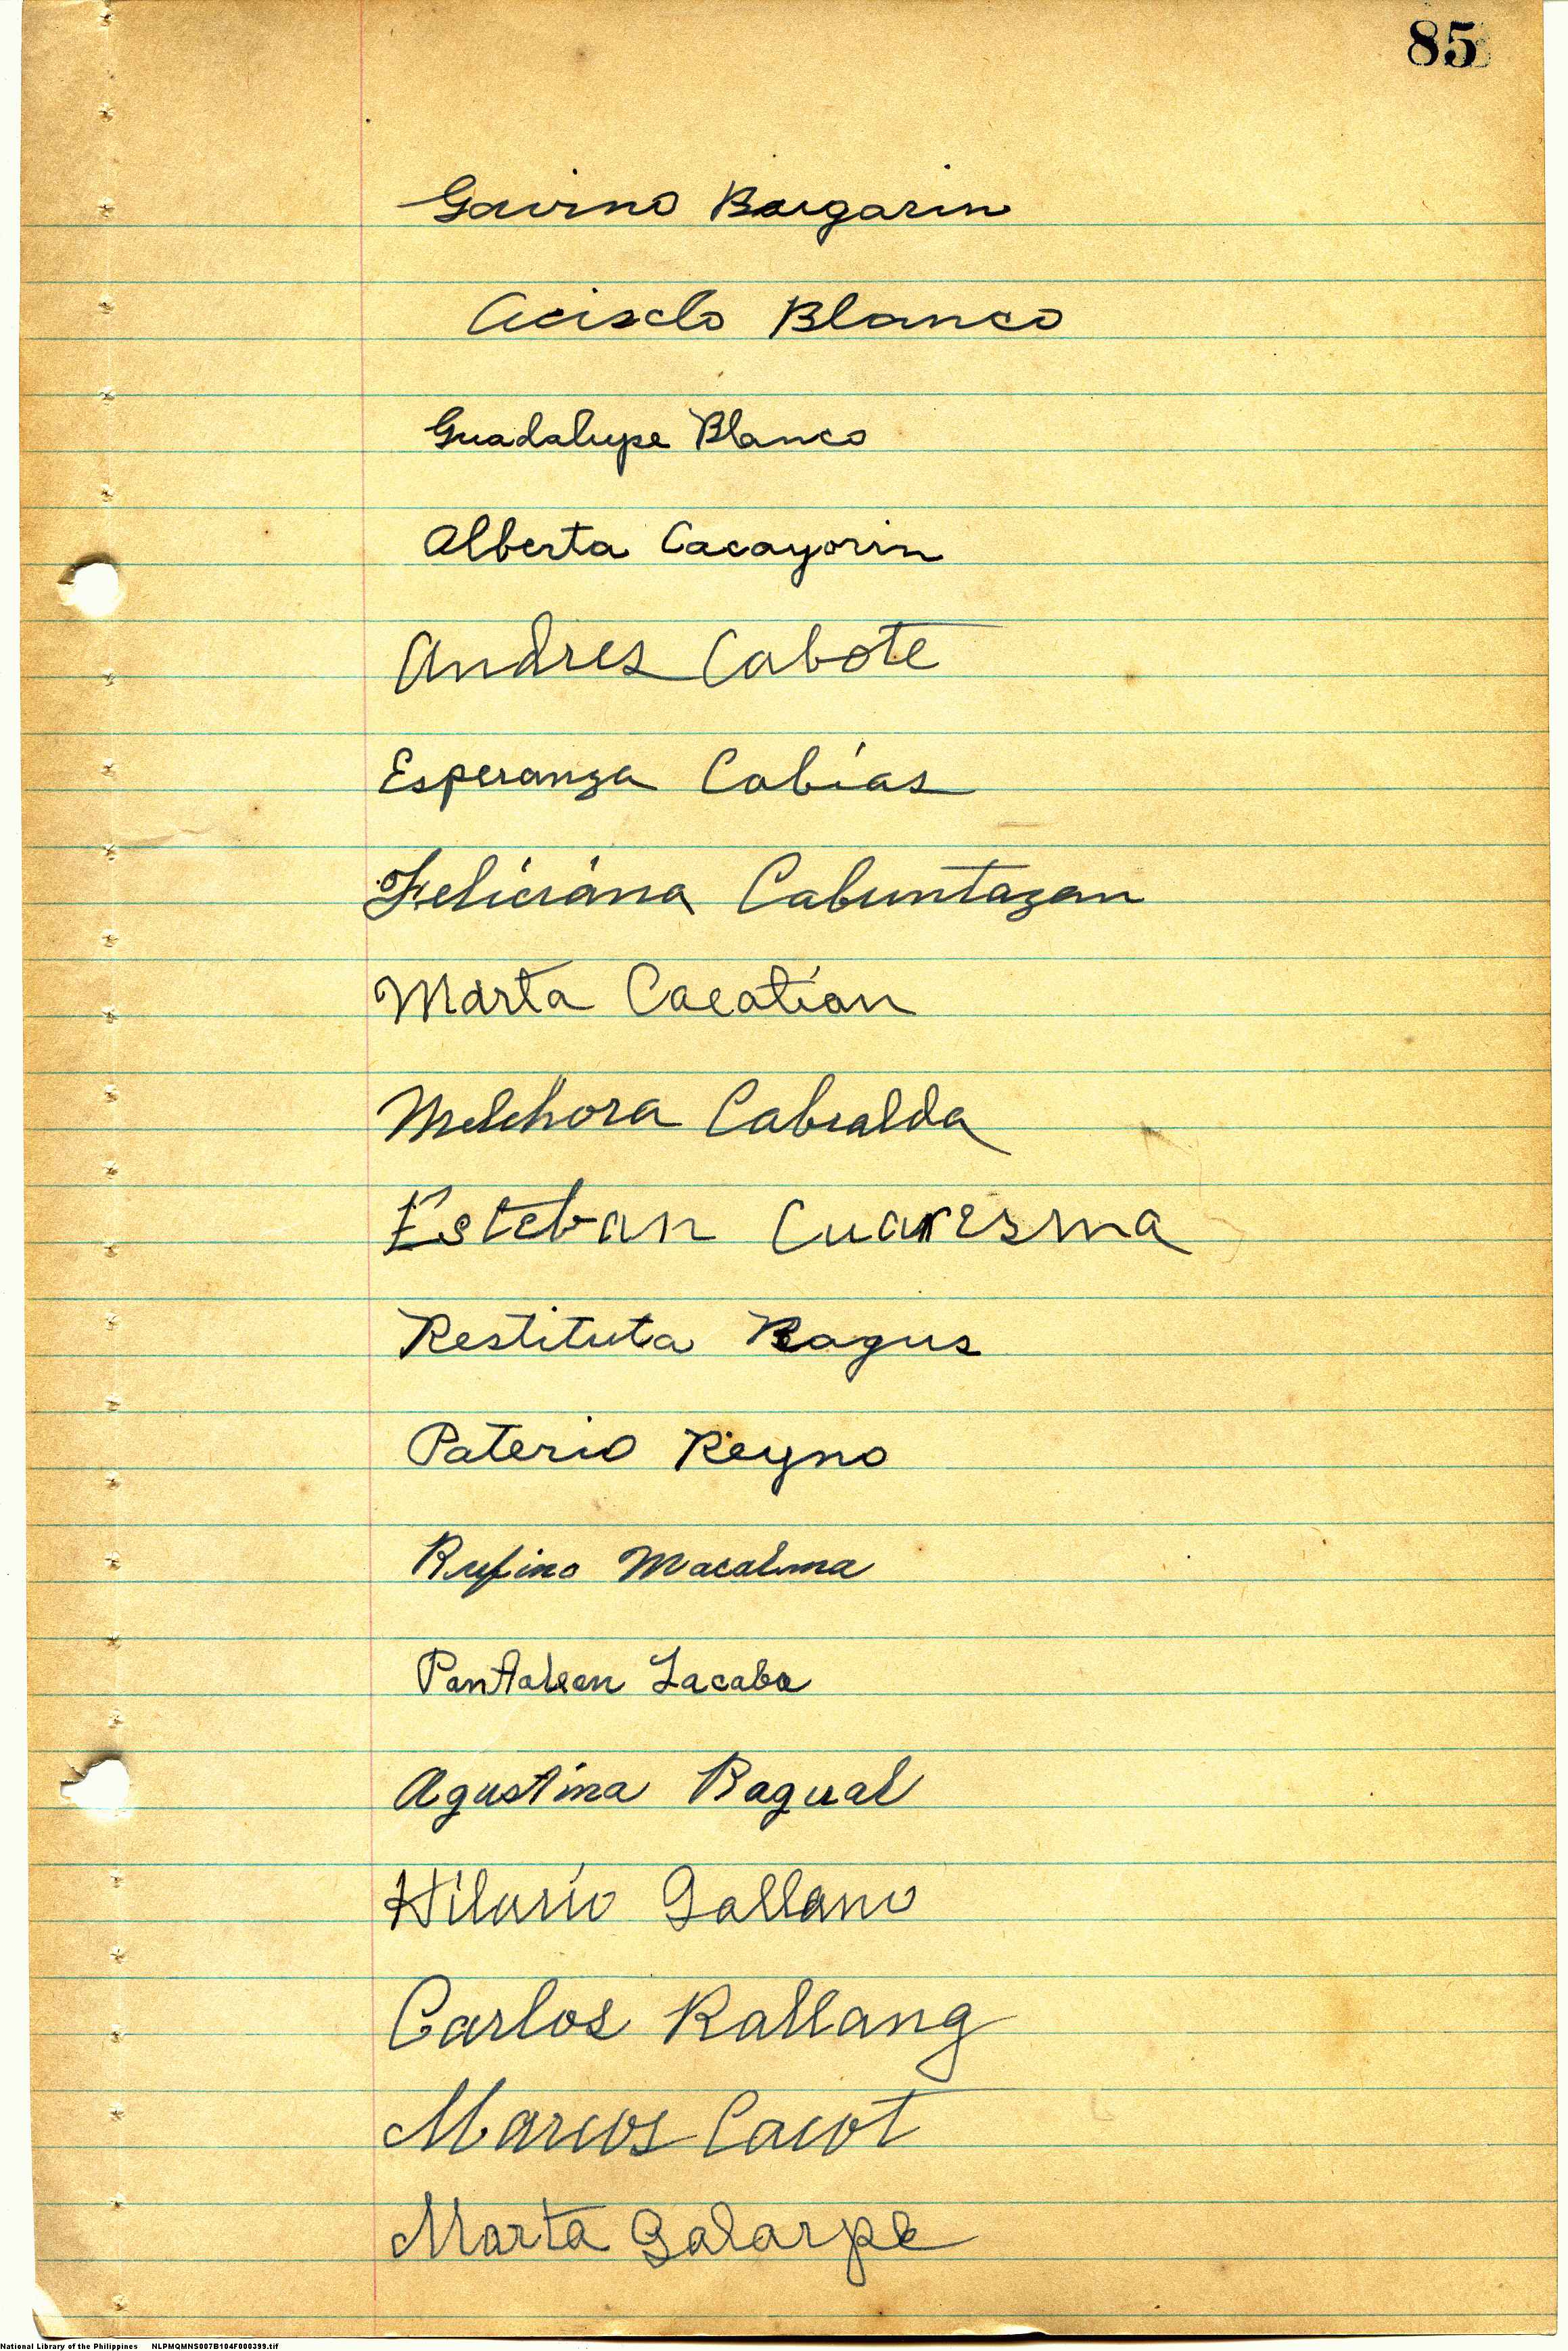 85
Gavino Bargarin
Acisclo Blanco
Guadalupe Blanco
Alberta Cacayorin
Andres Cabote
Esperanza Cabias
Feliciana Cabuntazan
Marta Cacatian
Melchora Cabralda
Esteban Cuaresma
Restituta Ragus
Paterio Reyno
Rufino Macalma
Pantaleon Lacaba
Agustina Ragual
Hilario Gallano
Carlos Rallang
Marcos Cacot
Marta Galarpe
National Library of the Philippines NLPMQMNS007B104F000399.tif